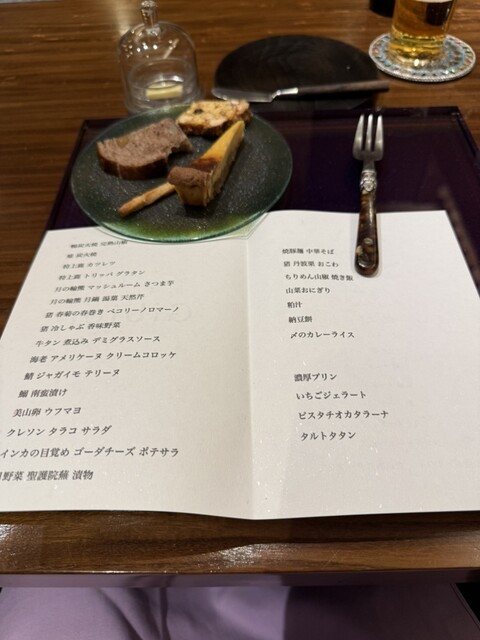 鴨炭火焼 完熟山椒
猪 炭火焼
特上鹿 カツレツ
特上鹿 トリッパ グラタン
月の輪熊 マッシュルーム さつま芋
月の輪熊 月鍋 湯葉 天然芹
猪 春菊の春巻き ペコリーノロマーノ
猪 冷しゃぶ 香味野菜
牛タン 煮込み デミグラスソース
海老 アメリケーヌ クリームコロッケ
鯖 ジャガイモ テリーヌ
鰯 南蛮漬け
美山卵 ウフマヨ
クレソン タラコ サラダ
インカの目覚め ゴーダチーズ ポテサラ
野菜 聖護院蕪 漬物
焼豚麺 中華そば
猪 丹波栗 おこわ
ちりめん山椒 焼き飯
山菜おにぎり
粕汁
納豆餅
〆のカレーライス
濃厚プリン
いちごジェラート
ピスタチオカタラーナ
タルトタタン